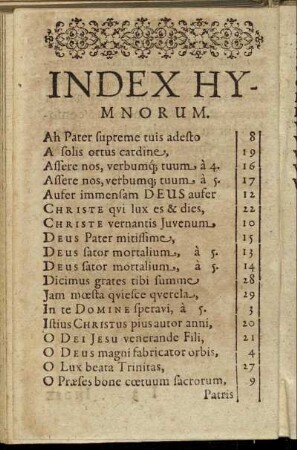 INDEX HY-
MNORUM.
Ah Pater supreme tuis adesto 8
A solis ortus cardine, 19
Assere nos, verbumq; tuum à 4. 16
Assere nos, verbumq; tuum à 5. 17
Aufer immensam DEUS aufer 12
CHRISTE qvi lux es & dies, 22
CHRISTE vernantis Juvenum 10
DEUS Pater mitissime, 15
DEUS sator mortalium, à 5. 13
DEUS sator mortalium, à 5. 14
Dicimus grates tibi summe 28
Jam mœsta qviesce qverela, 29
In te DOMINE speravi, à 5. 3
Istius CHRISTUS pius autor anni, 20
O DEI JESU venerande Fili, 21
O DEUS magni fabricator orbis, 4
O Lux beata Trinitas, 27
O Præses bone cœtuum sacrorum, 9
Patris